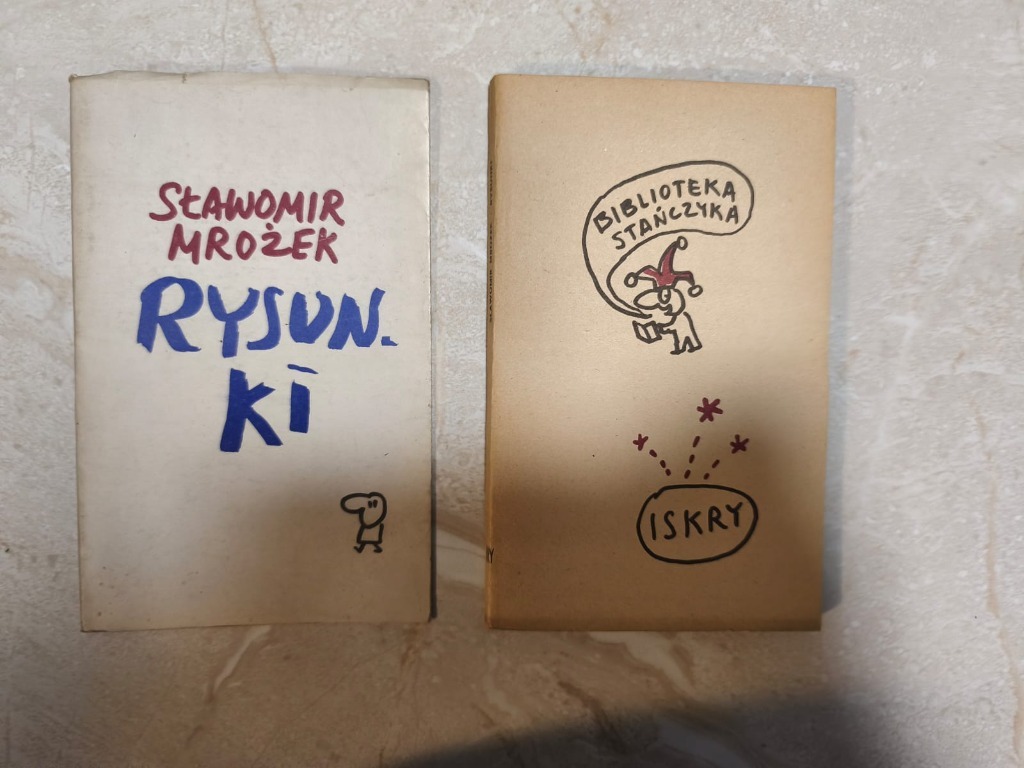 SŁAWOMIR
MROŻEK
RYSUN.
KI
BIBLIOTEKA
STAŃCZYKA
ISKRY